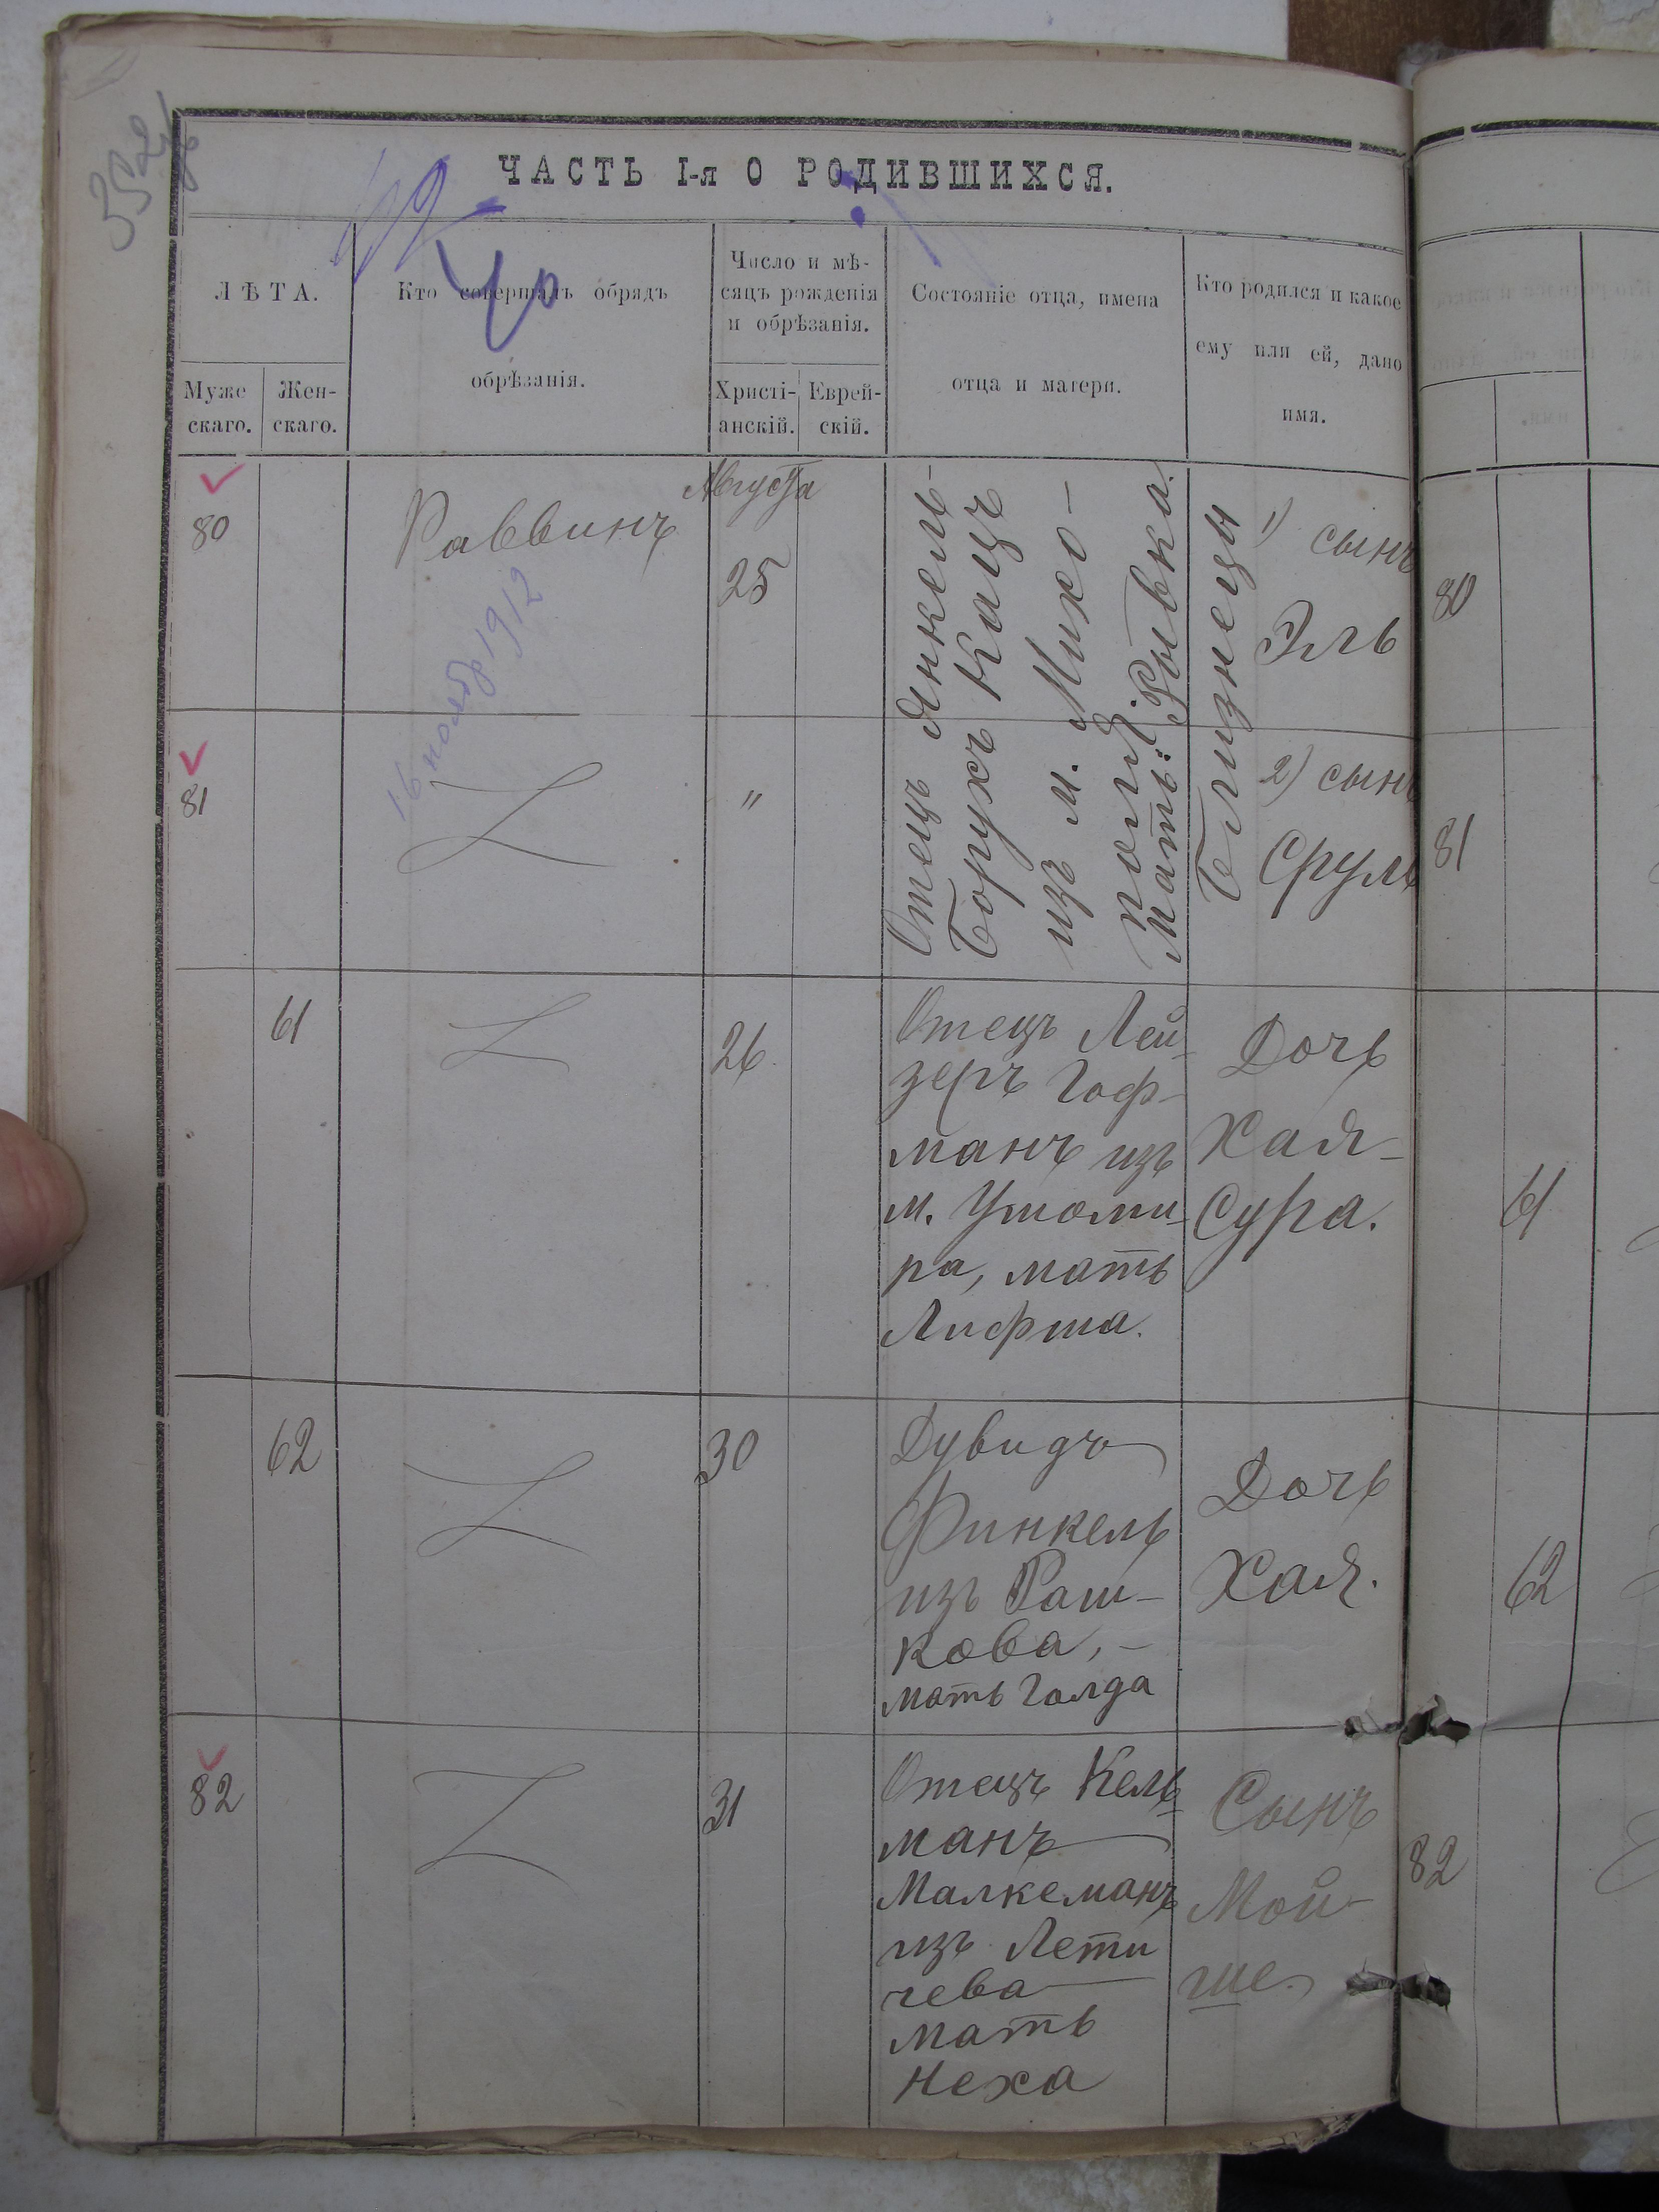 ЧАСТЬ I-я О РОДИВШИХСЯ.
ЛѢТА.
Муже
скаго.
Жен-
скаго.
Кто совершалъ обрядъ
обрѣзанія.
Число и мѣ-
сяцъ рожденія
и обрѣзанія.
Христі-
анскій.
Еврей-
скій.
Состояніе отца, имена
отца и матери.
Кто родился и какое
ему или ей, дано
имя.
80
Раввинъ
Августа
25
Отецъ Янкель-
Борухъ Кацъ
изъ м. Мико-
поля.
Мать: Рывка.
Близнецы
1) сынъ
Эль
80
16 ноября 1912
81
"
2) сынъ
Сруль
81
61
26
Отецъ Лей-
зеръ Гоф-
манъ изъ
м. Ушоми-
ра, мать
Лифша.
Дочь
Хая-
Сура.
61
62
30
Дувидъ
Финкель
изъ Раш-
кова,
мать Голда
Дочь
Хая.
62
82
31
Отецъ Кель-
манъ
Малкеманъ
изъ Лети
чева
мать
Неха
Сынъ
Мой-
ше.
82